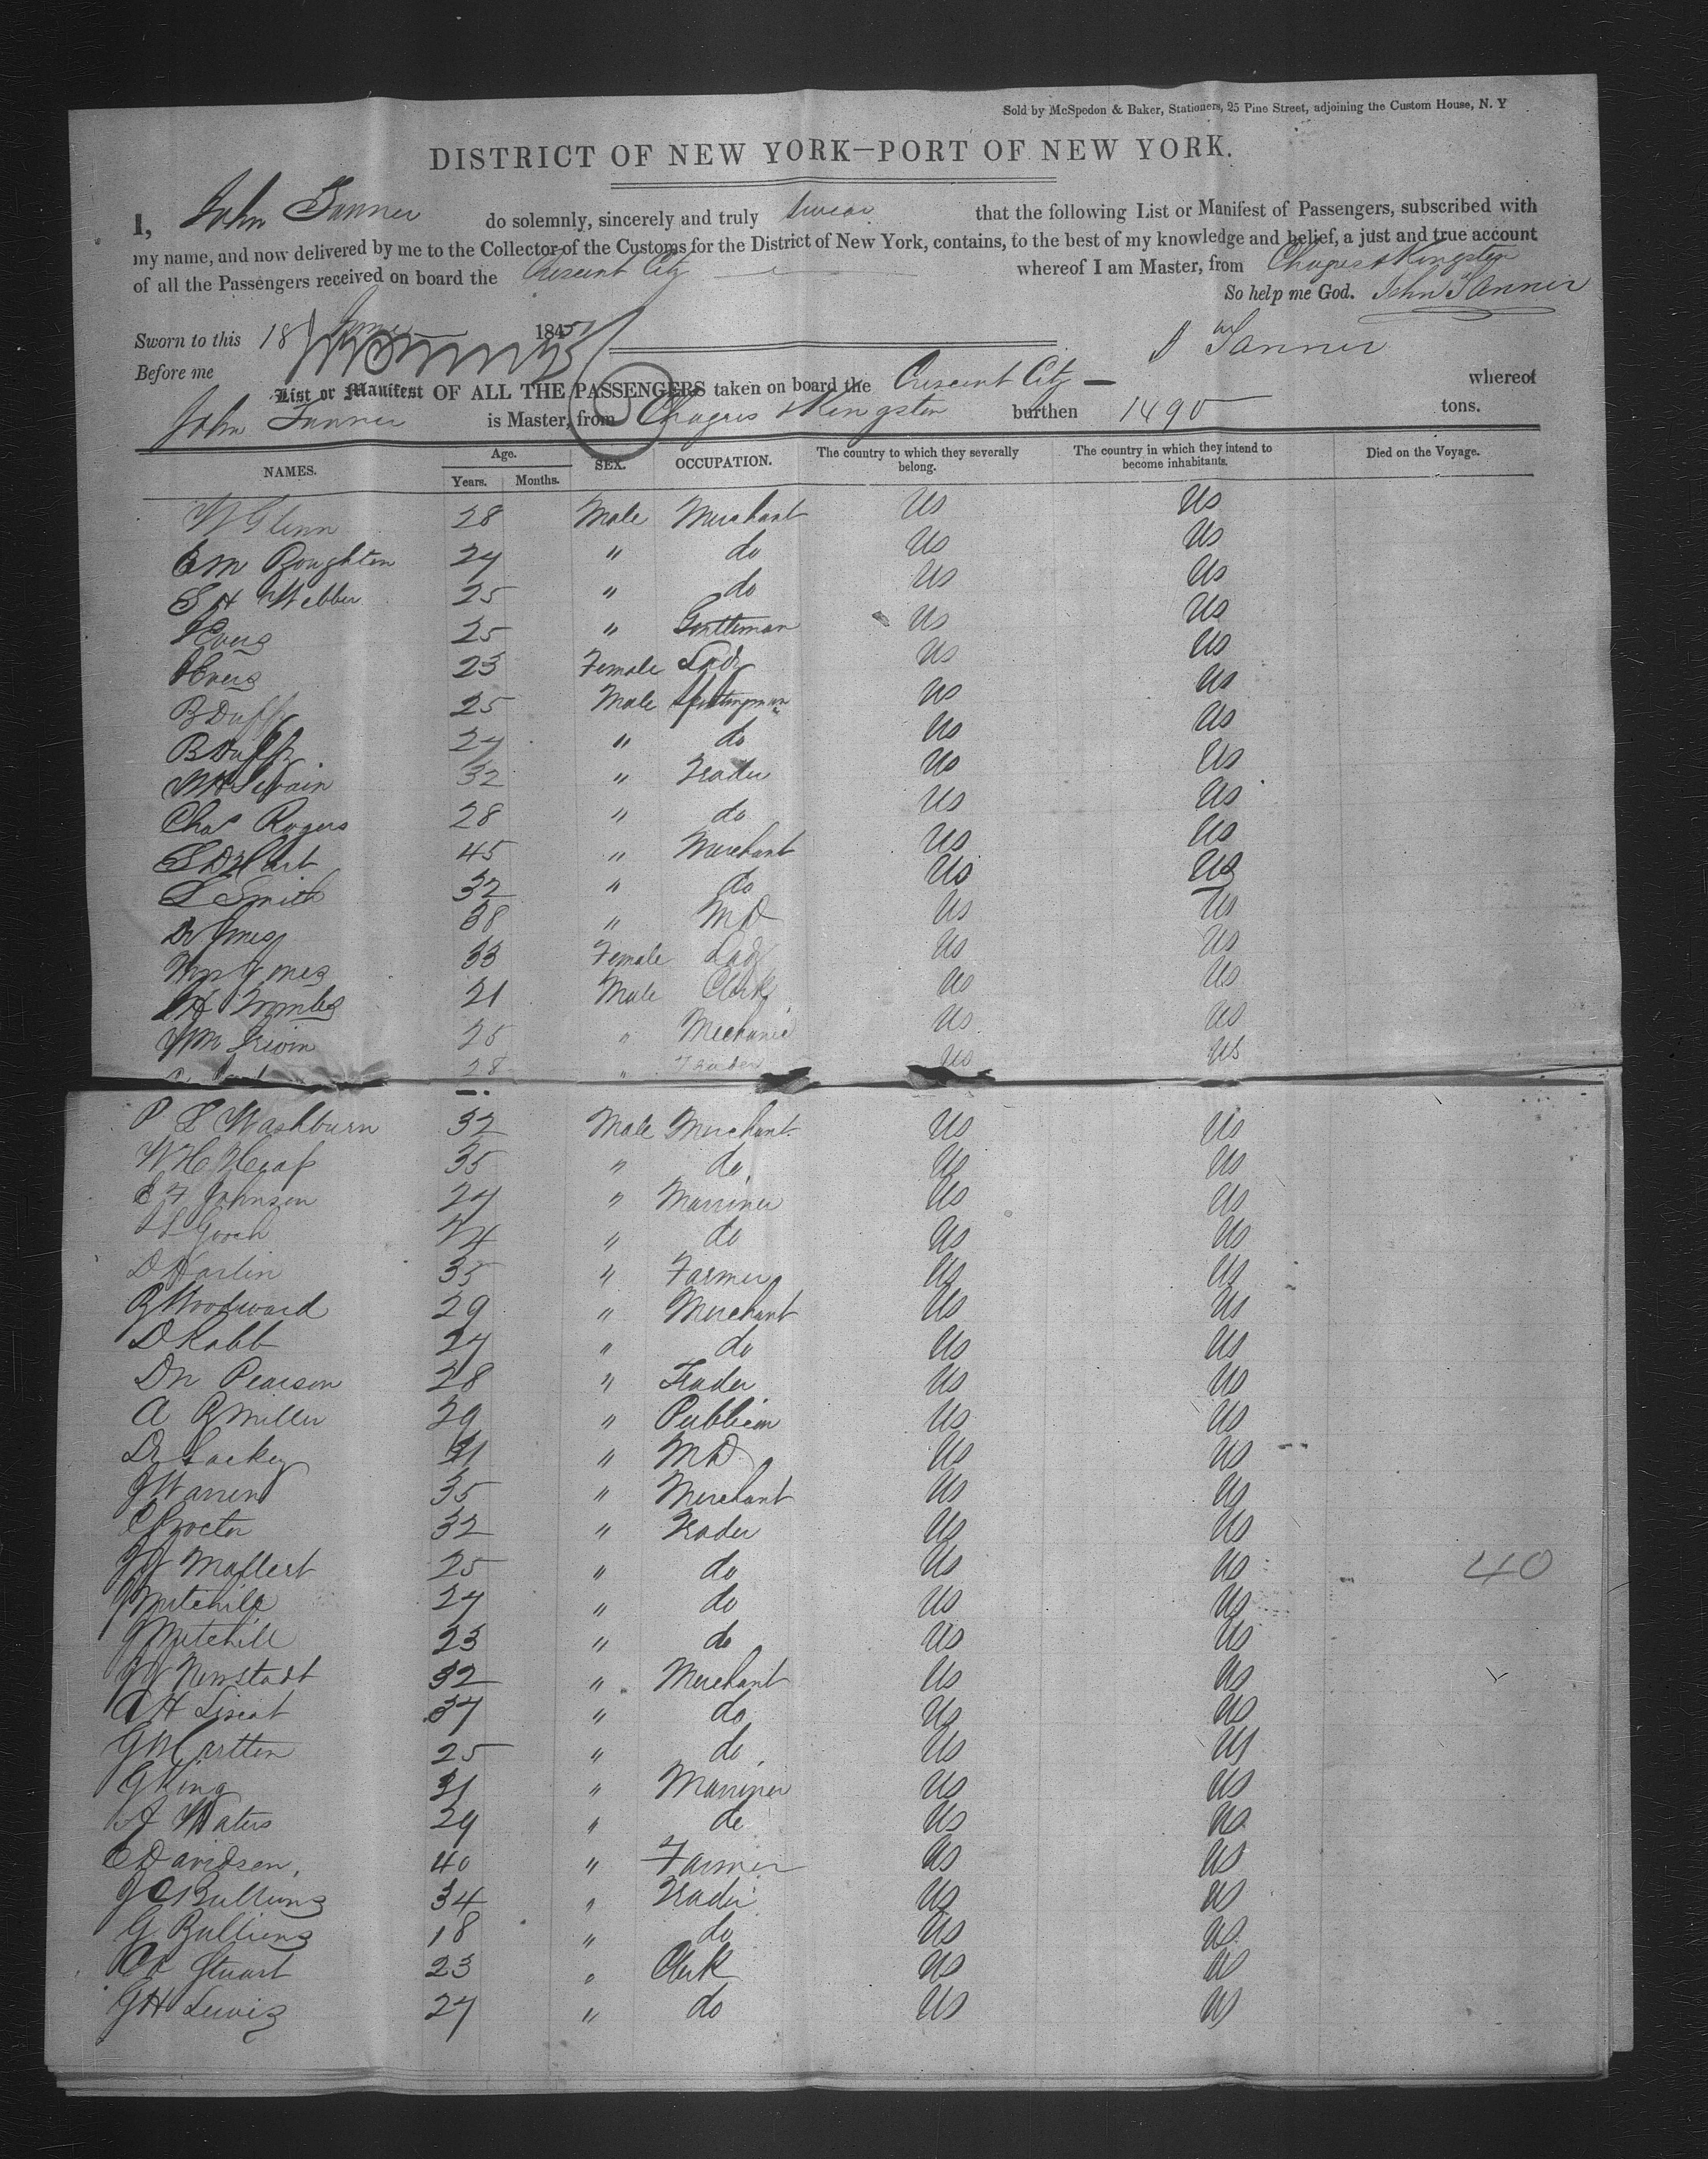 Sold by McSpedon & Baker, Stationers, 25 Pine Street, adjoining the Custom House, N. Y
DISTRICT OF NEW YORK—PORT OF NEW YORK.
I, John Tanner do solemnly, sincerely and truly swear that the following List or Manifest of Passengers, subscribed with
my name, and now delivered by me to the Collector of the Customs for the District of New York, contains, to the best of my knowledge and belief, a just and true account
of all the Passengers received on board the Crescent City whereof I am Master, from Chagres & Kingston
So help me God. John Tanner
Sworn to this 18 June 185
Before me Tanner
List or Manifest OF ALL THE PASSENGERS taken on board the Crescent City — whereof
John Tanner is Master, from Chagres & Kingston burthen 1490 tons.
NAMES. Age. Years. Months. SEX. OCCUPATION. The country to which they severally belong. The country in which they intend to become inhabitants. Died on the Voyage.
W Glenn 28 Male Merchant Us Us
E M Boughton 24 " do Us Us
S H Webber 25 " do Us Us
25 " Gentleman Us Us
23 Female Lady Us Us
B Duffy 25 Male Us Us
B Duffy 24 " do Us Us
W H Swain 32 " Trader Us Us
Chas Rogers 28 " do Us Us
S D Hart 45 " Merchant Us Us
L Smith 32 " do Us Us
Dr Jones 38 " MD Us Us
Mrs Jones 33 Female Lady Us Us
H Tombs 21 Male Clerk Us Us
Wm Irwin 25 " Mechanic Us Us
28 " Trader Us Us
P L Washburn 32 Male Merchant Us Us
W H Heap 35 " do Us Us
E F Johnson 24 " Marriner Us Us
Gooch 44 " do Us Us
D Harlin 35 " Farmer Us Us
B Woodward 29 " Merchant Us Us
D Rabb 24 " do Us Us
Dn Pearson 28 " Trader Us Us
A B Miller 29 " Publican Us Us
Dr Lackey 31 " MD Us Us
J Warren 35 " Merchant Us Us
C Procter 32 " Trader Us Us
J J Mallert 25 " do Us Us 40
J Mitchill 24 " do Us Us
J Mitchill 23 " do Us Us
J J Newstadt 32 " Merchant Us Us
A H Liscat 37 " do Us Us
G W Cartten 25 " do Us Us
G King 31 " Marriner Us Us
Waters 29 " do Us Us
C Davidson 40 " Farmer Us Us
J C Bulliens 34 " Trader Us Us
G Bulliens 18 " do Us Us
Stuart 23 " Clerk Us Us
G H Lewis 24 " do Us Us